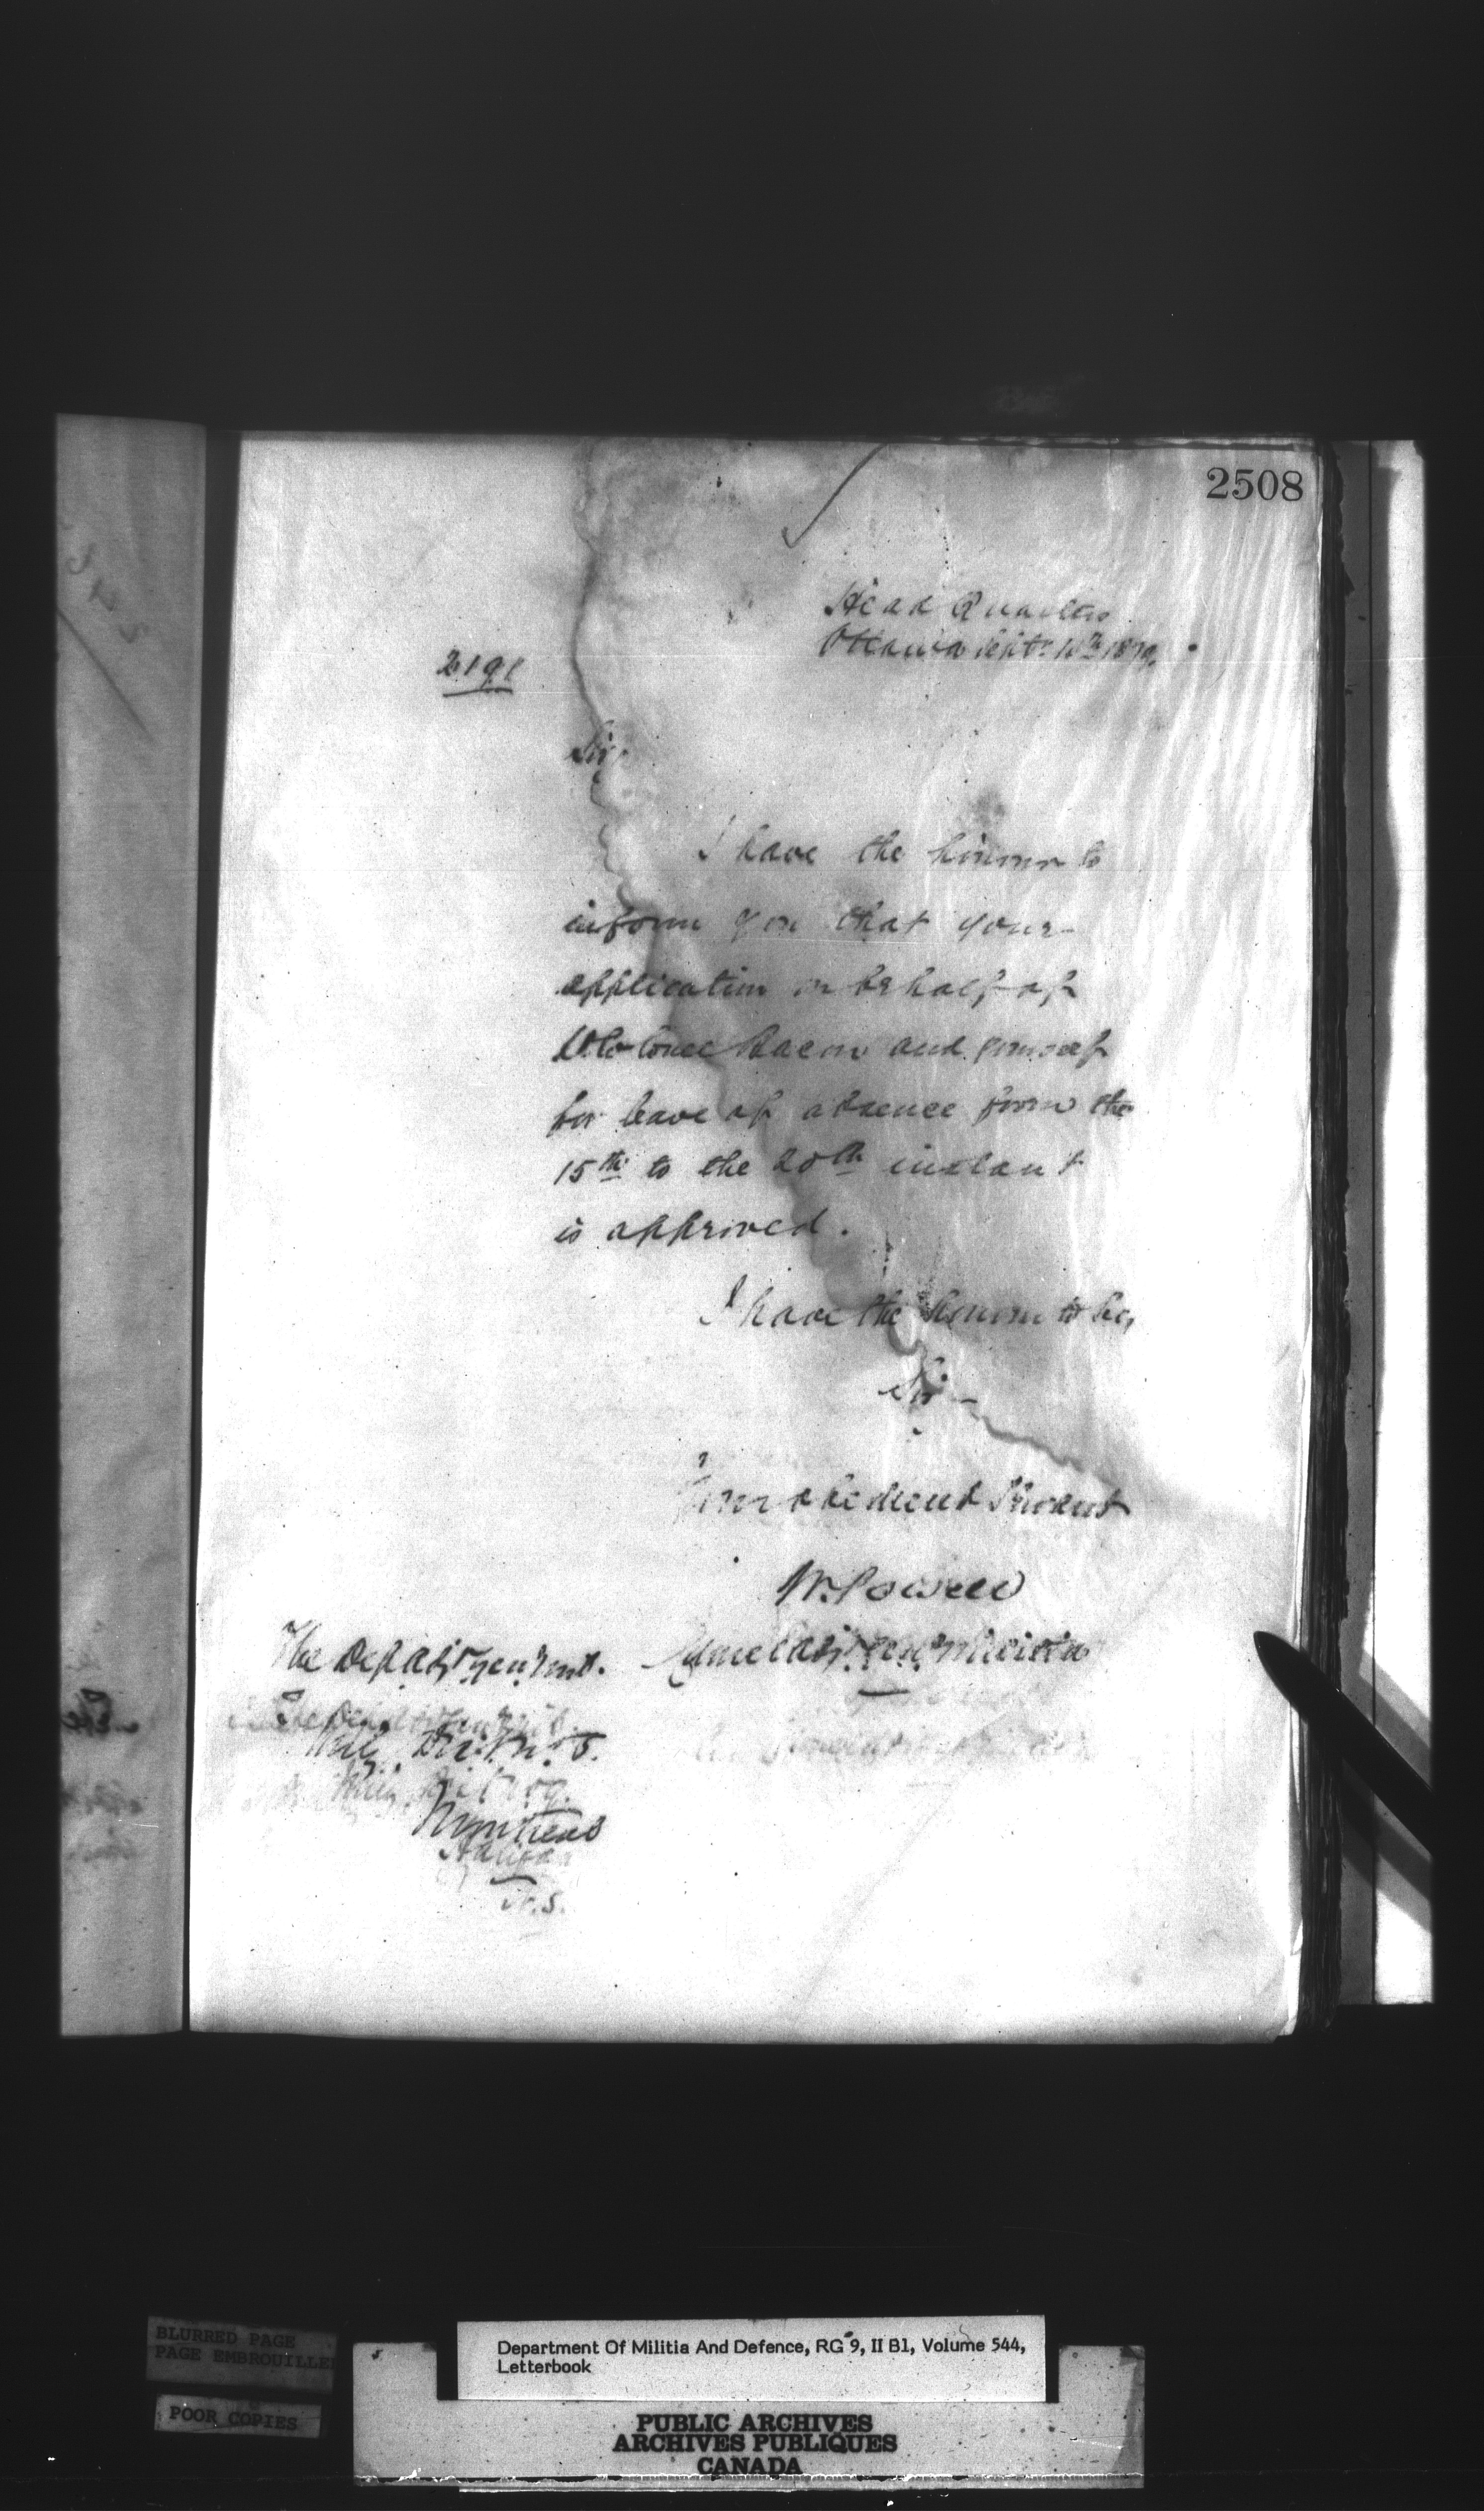 2508
Head Quarters
Ottawa Sept. 1879.
2191
Sir,
I have the honour to
inform you that your
application on behalf of
Lt. Colonel Bacon and yourself
for leave of absence from the
15th to the 20th instant
is approved.
I have the honour to be,
Sir
Your obedient Servant
W. Powell
Adjt. Genl. Militia
The Dep. Adjt. Genl. Comdg.
Mily. Dis. No. 5.
Montreal
Halifax
N.S.
BLURRED PAGE
PAGE EMBROUILLE
POOR COPIES
Department Of Militia And Defence, RG 9, II B1, Volume 544,
Letterbook
PUBLIC ARCHIVES
ARCHIVES PUBLIQUES
CANADA